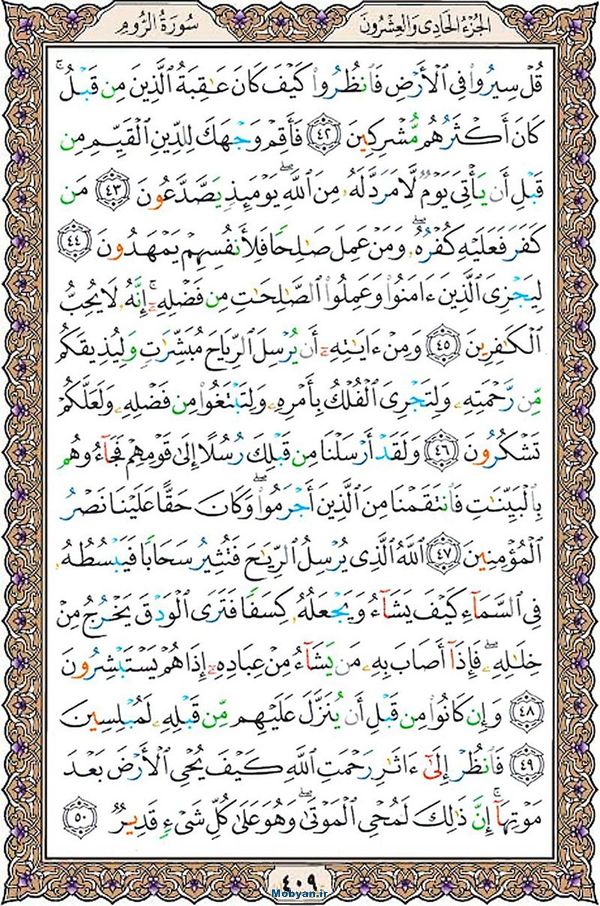 سُورَةُ الرُّومِ
الجُزْءُ الحَادِى وَالعِشْرُونَ
قُلْ سِيرُوا۟ فِى ٱلْأَرْضِ فَٱنظُرُوا۟ كَيْفَ كَانَ عَـٰقِبَةُ ٱلَّذِينَ مِن قَبْلُ ۚ
كَانَ أَكْثَرُهُم مُّشْرِكِينَ ٤٢ فَأَقِمْ وَجْهَكَ لِلدِّينِ ٱلْقَيِّمِ مِن
قَبْلِ أَن يَأْتِىَ يَوْمٌ لَّا مَرَدَّ لَهُۥ مِنَ ٱللَّهِ ۖ يَوْمَئِذٍ يَصَّدَّعُونَ ٤٣ مَن
كَفَرَ فَعَلَيْهِ كُفْرُهُۥ ۖ وَمَنْ عَمِلَ صَـٰلِحًا فَلِأَنفُسِهِمْ يَمْهَدُونَ ٤٤
لِيَجْزِىَ ٱلَّذِينَ ءَامَنُوا۟ وَعَمِلُوا۟ ٱلصَّـٰلِحَـٰتِ مِن فَضْلِهِۦٓ ۚ إِنَّهُۥ لَا يُحِبُّ
ٱلْكَـٰفِرِينَ ٤٥ وَمِنْ ءَايَـٰتِهِۦٓ أَن يُرْسِلَ ٱلرِّيَاحَ مُبَشِّرَٰتٍ وَلِيُذِيقَكُم
مِّن رَّحْمَتِهِۦ وَلِتَجْرِىَ ٱلْفُلْكُ بِأَمْرِهِۦ وَلِتَبْتَغُوا۟ مِن فَضْلِهِۦ وَلَعَلَّكُمْ
تَشْكُرُونَ ٤٦ وَلَقَدْ أَرْسَلْنَا مِن قَبْلِكَ رُسُلًا إِلَىٰ قَوْمِهِمْ فَجَآءُوهُم
بِٱلْبَيِّنَـٰتِ فَٱنتَقَمْنَا مِنَ ٱلَّذِينَ أَجْرَمُوا۟ ۖ وَكَانَ حَقًّا عَلَيْنَا نَصْرُ
ٱلْمُؤْمِنِينَ ٤٧ ٱللَّهُ ٱلَّذِى يُرْسِلُ ٱلرِّيَـٰحَ فَتُثِيرُ سَحَابًا فَيَبْسُطُهُۥ
فِى ٱلسَّمَآءِ كَيْفَ يَشَآءُ وَيَجْعَلُهُۥ كِسَفًا فَتَرَى ٱلْوَدْقَ يَخْرُجُ مِنْ
خِلَـٰلِهِۦ ۖ فَإِذَآ أَصَابَ بِهِۦ مَن يَشَآءُ مِنْ عِبَادِهِۦٓ إِذَا هُمْ يَسْتَبْشِرُونَ
٤٨ وَإِن كَانُوا۟ مِن قَبْلِ أَن يُنَزَّلَ عَلَيْهِم مِّن قَبْلِهِۦ لَمُبْلِسِينَ
٤٩ فَٱنظُرْ إِلَىٰٓ ءَاثَـٰرِ رَحْمَتِ ٱللَّهِ كَيْفَ يُحْىِ ٱلْأَرْضَ بَعْدَ
مَوْتِهَآ ۚ إِنَّ ذَٰلِكَ لَمُحْىِ ٱلْمَوْتَىٰ ۖ وَهُوَ عَلَىٰ كُلِّ شَىْءٍ قَدِيرٌ ٥٠
٤٠٩
Mobyan.ir